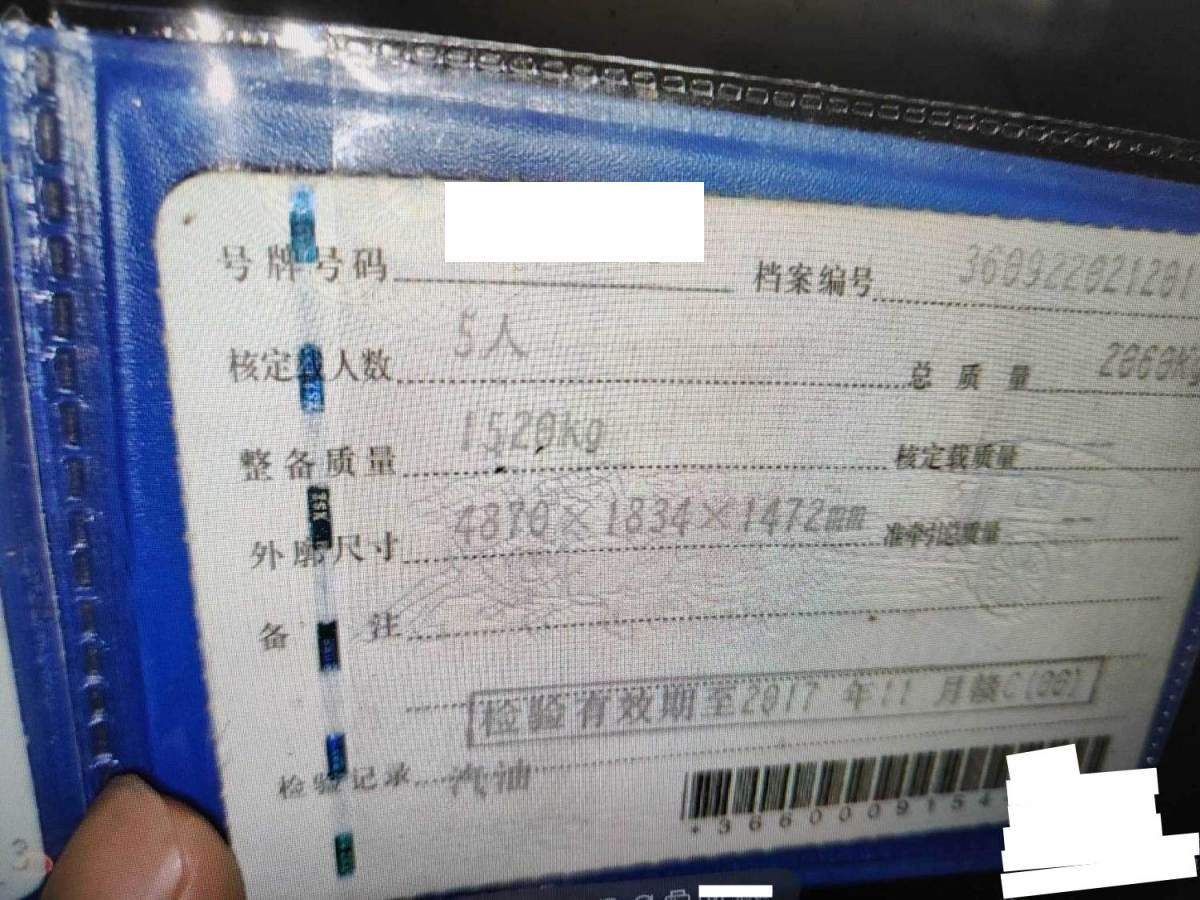 号牌号码 档案编号 360922021201
核定载人数 5人 总质量 2060kg
整备质量 1520kg 核定载质量 --
外廓尺寸 4870×1834×1472mm 准牵引总质量 --
备注
检验有效期至2017 年11 月赣C(00)
检验记录 汽油
*3660009154